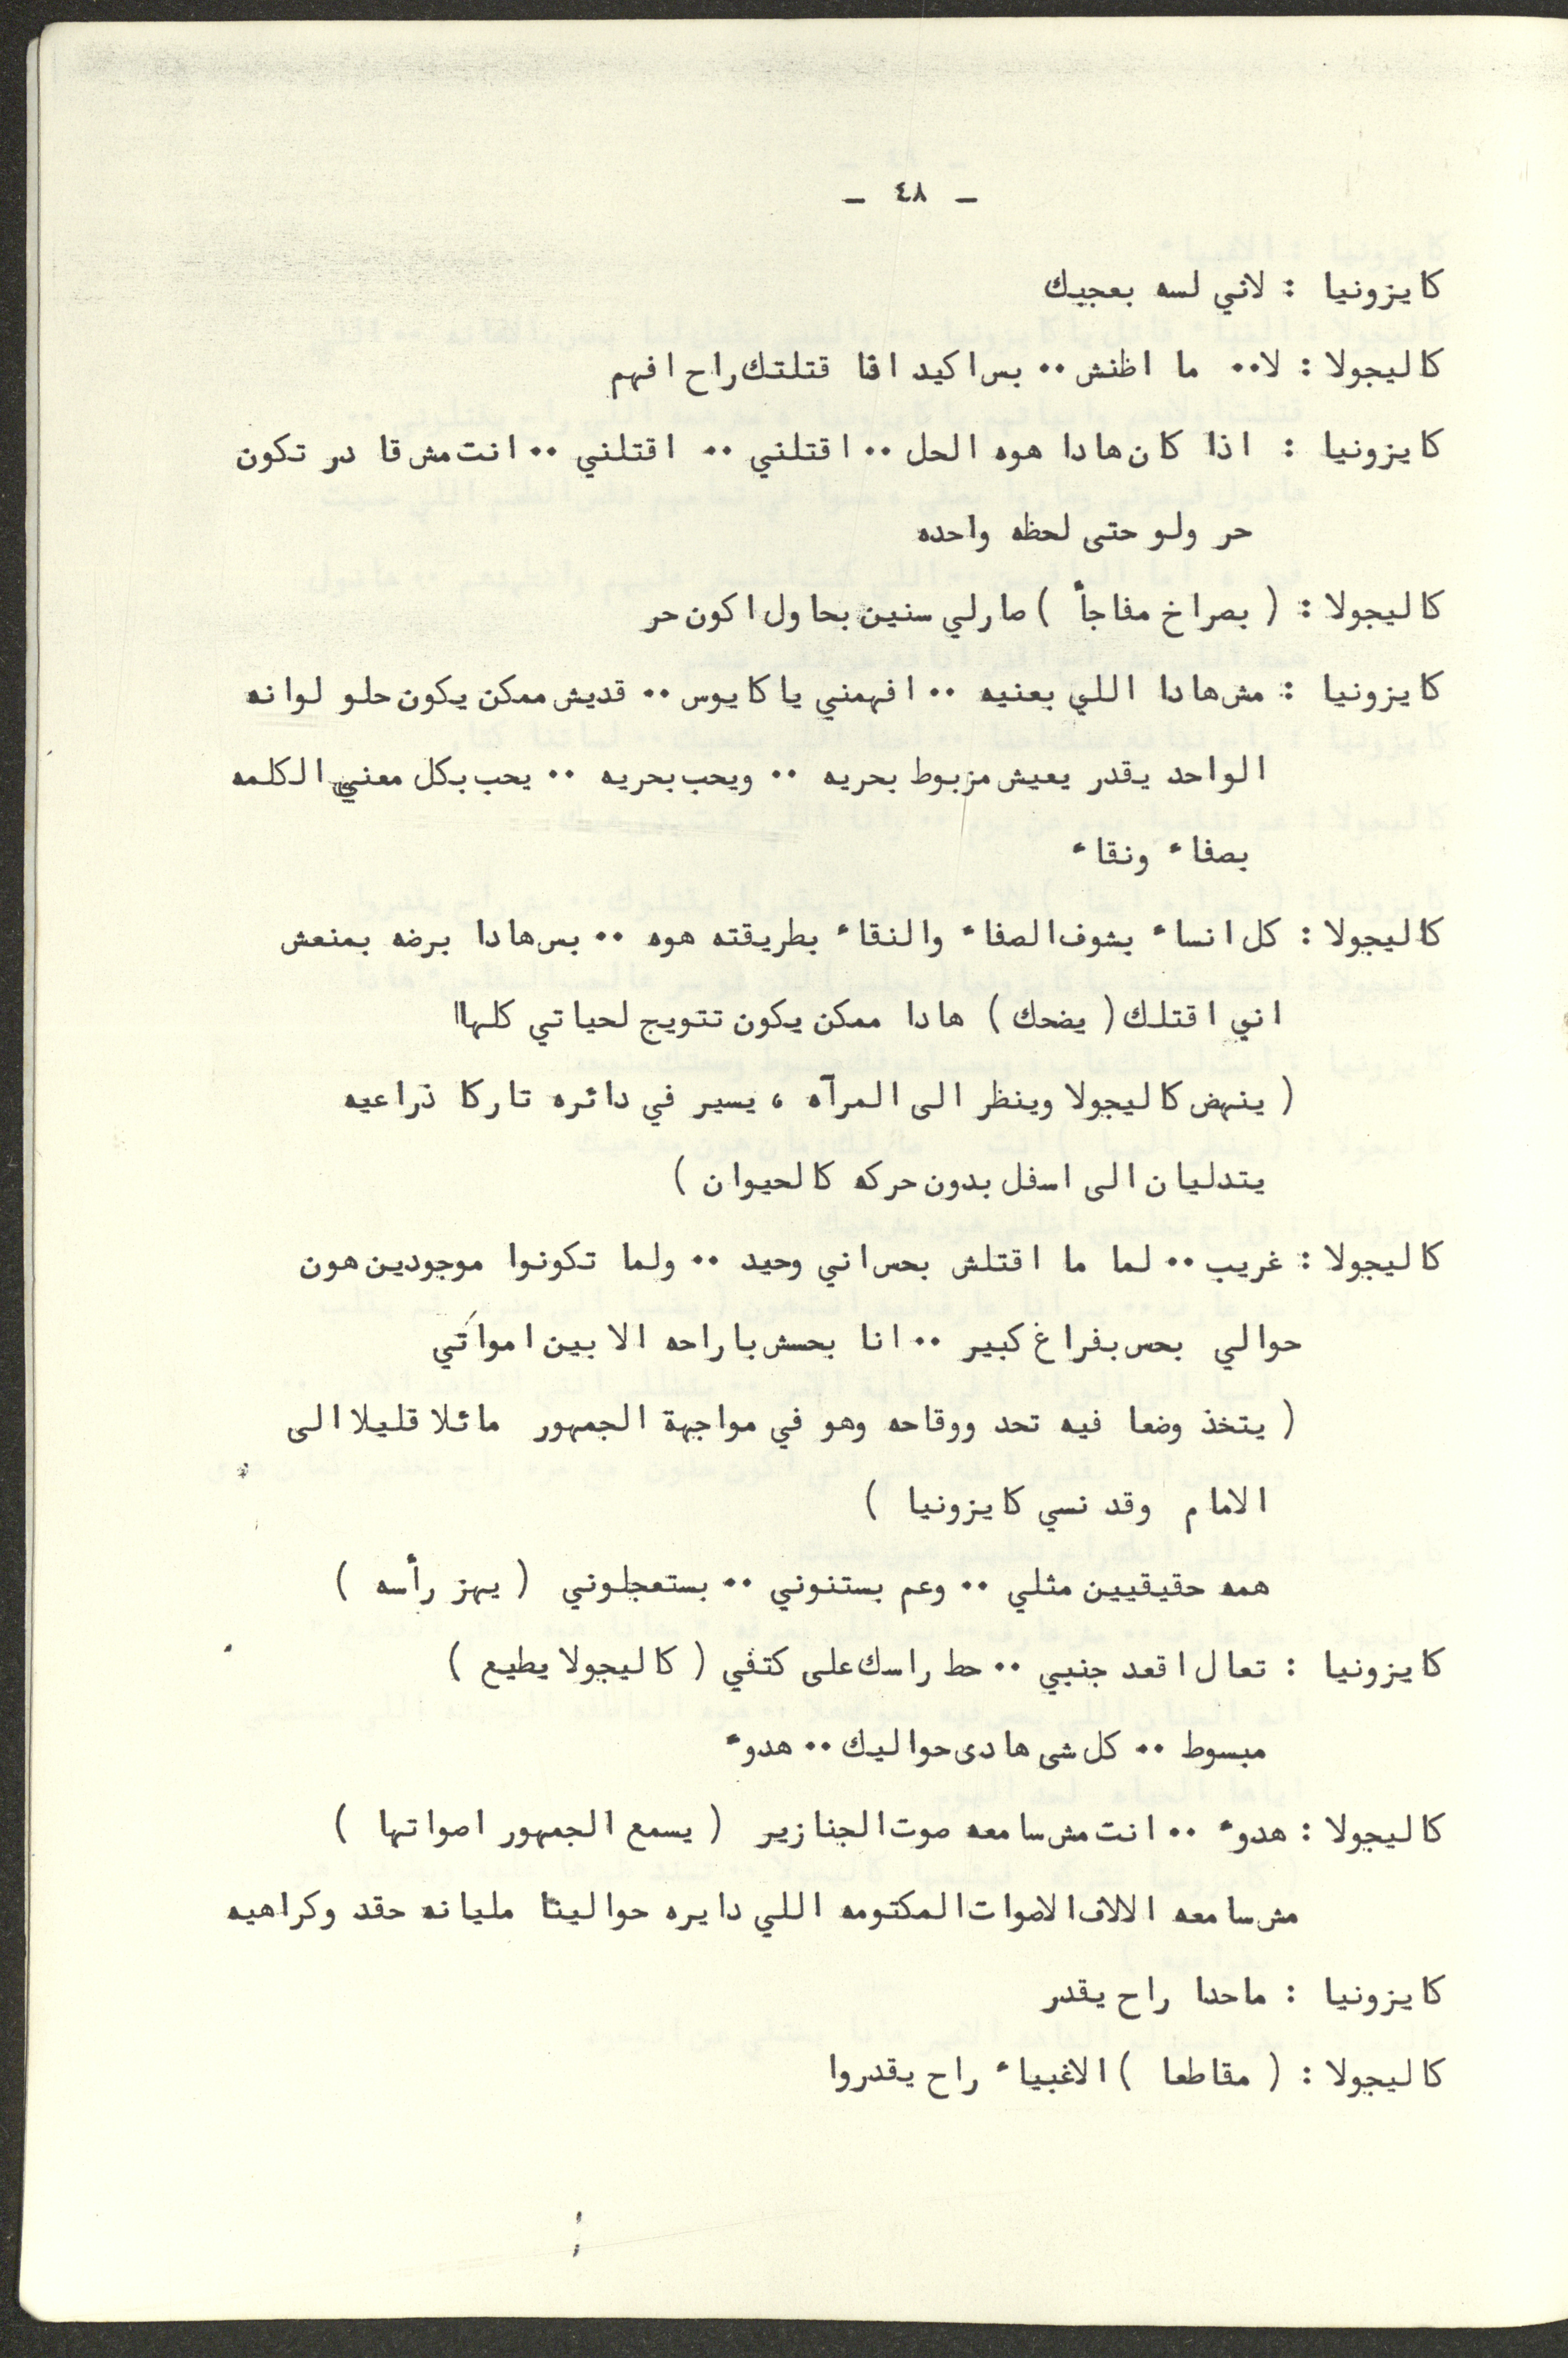 - ٤٨ -
كايزونيا : لاني لسه بعجبك
كاليجولا : لا.. ما اظنش .. بس اكيد اقا قتلتك راح افهم
كايزونيا : اذا كان هادا هوه الحل .. اقتلني .. اقتلني .. انت مش قادر تكون
حر ولو حتى لحظه واحده
كاليجولا : ( بصراخ مفاجأ ) صارلي سنين بحاول اكون حر
كايزونيا : مش هادا اللي بعنيه .. افهمني يا كايوس .. قديش ممكن يكون حلو لوانه
الواحد يقدر يعيش مزبوط بحريه .. ويحب بحريه .. يحب بكل معني الكلمه
بصفاء ونقاء
كاليجولا : كل انساء بشوف الصفاء والنقاء بطريقته هوه .. بس هادا برضه بمنعش
اني اقتلك ( يضحك ) هادا ممكن يكون تتويج لحياتي كلها!!
( ينهض كاليجولا وينظر الى المرآه ، يسير في دائره تاركا ذراعيه
يتدليان الى اسفل بدون حركه كالحيوان )
كاليجولا : غريب .. لما ما اقتلش بحس اني وحيد .. ولما تكونوا موجودين هون
حوالي بحس بفراغ كبير .. انا بحسش باراحه الا بين امواتي
( يتخذ وضعا فيه تحد ووقاحه وهو في مواجهة الجمهور مائلا قليلا الى
الامام وقد نسي كايزونيا )
همه حقيقيين مثلي .. وعم بستنوني .. بستعجلوني ( يهز رأسه )
كايزونيا : تعال اقعد جنبي .. حط راسك على كتفي ( كاليجولا يطيع )
مبسوط .. كل شى هادى حواليك .. هدوء
كاليجولا : هدوء .. انت مش سامعه صوت الجنازير ( يسمع الجمهور اصواتها )
مش سامعه الالاف الاصوات المكتومه اللي دايره حوالينا مليانه حقد وكراهيه
كايزونيا : ماحدا راح يقدر
كاليجولا : ( مقاطعا ) الاغبياء راح يقدروا